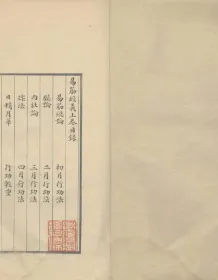 易筋經義上卷目錄
易筋總論 初月行功法
膜論 二月行功法
內壯論 三月行功法
揉法 四月行功法
日精月華 行功輕重